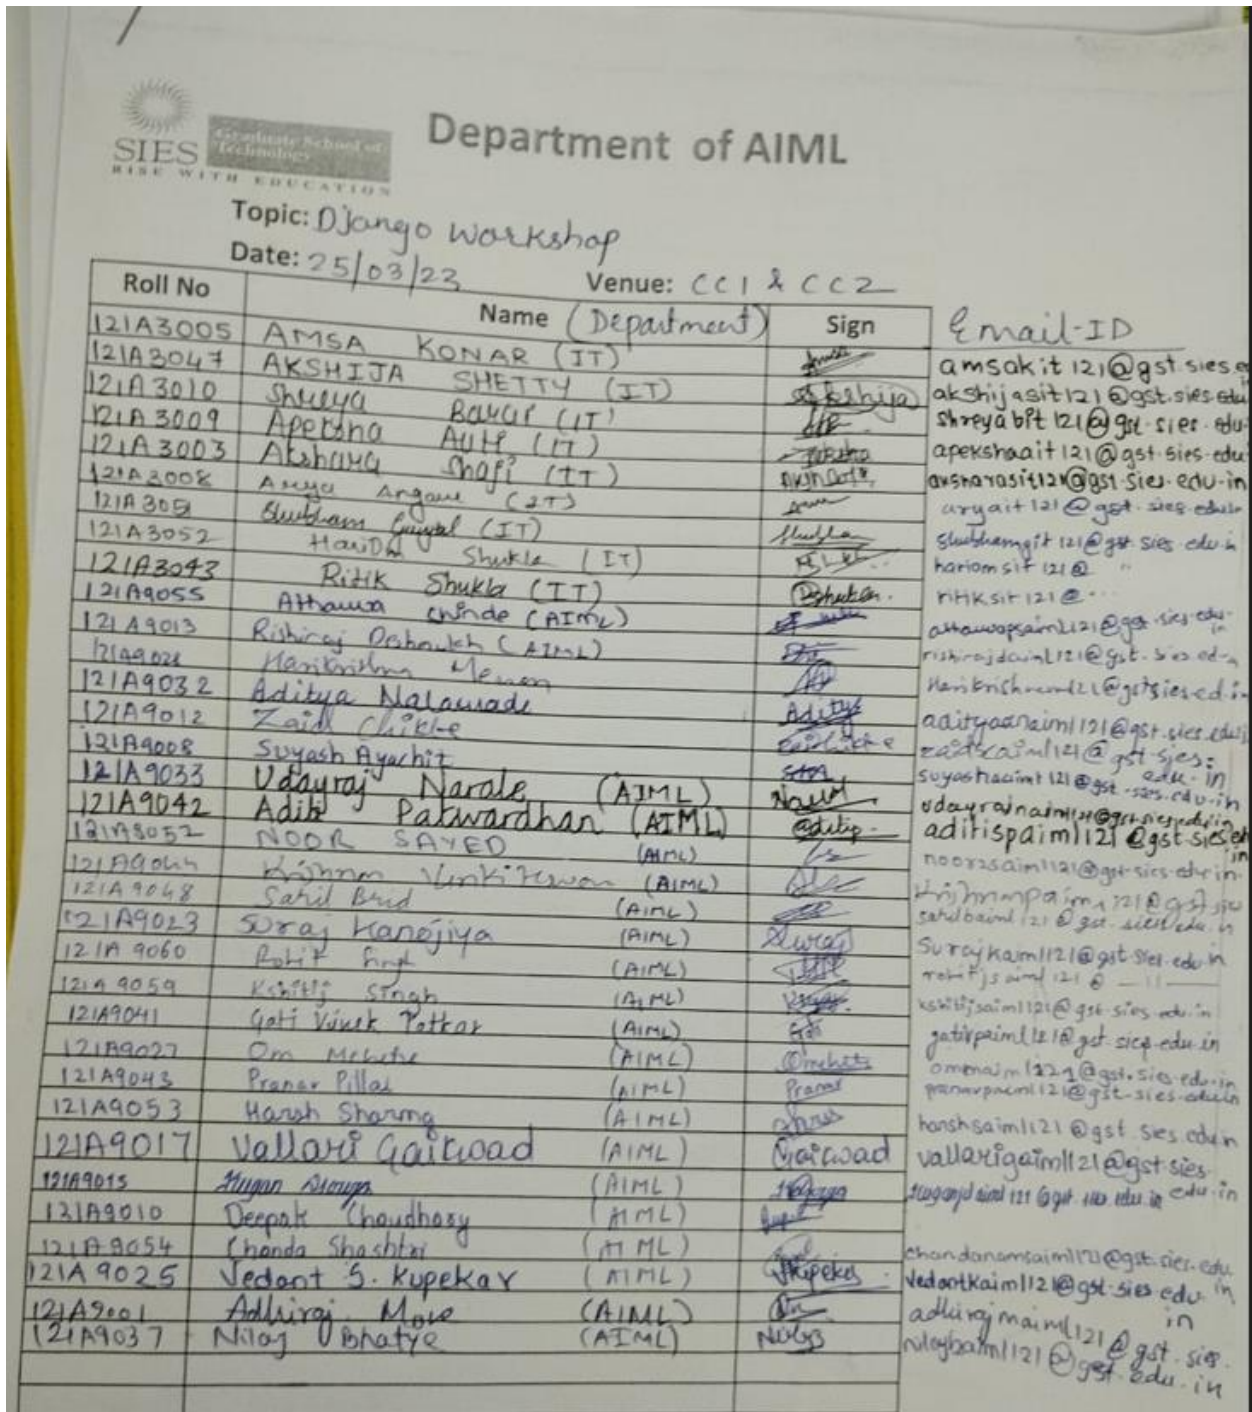 SIES Graduate School of Technology
RISE WITH EDUCATION
Department of AIML
Topic: Django Workshop
Date: 25/03/23 Venue: CC1 & CC2
Roll No Name (Department) Sign Email-ID
121A3005 AMSA KONAR (IT) amsakit121@gst.sies.e
121A3047 AKSHIJA SHETTY (IT) Akshija akshijasit121@gst.sies.edu
121A3010 Shreya Barai (IT) shreyabit121@gst.sies.edu.
121A3009 Apeksha Auti (IT) apekshaait121@gst.sies.edu
121A3003 Akshara Shaji (IT) aksharasit121@gst.sies.edu.in
121A3008 Arya Angane (IT) aryait121@gst.sies.edu.in
121A305 Shubham (IT) shubhamgit121@gst.sies.edu.in
121A3052 HariOm Shukla (IT) hariomsit121@ "
121A3043 Ritik Shukla (IT) ritiksit121@
121A9055 Atharva Shinde (AIML)
121A9013 Rishiraj Deshmukh (AIML) rishirajdaiml121@gst.sies.ed
121A9028 Harikrishna Menon
121A9032 Aditya Nalawade Aditya adityanaraiml121@gst.sies.edu
121A9012 Zaid Chikte zaidscaiml121@gst.sies.
121A9008 Suyash Ayachit edu.in
121A9033 Udayraj Narale (AIML) udayrajnaiml121@gst.sies.edu.in
121A9042 Aditi Patwardhan (AIML) aditip aditispaiml121@gst.sies.ed
in
121A9052 NOOR SAYED (AIML) noorzsaiml121@gst.sies.edu.in
121A9044 Krishnan (AIML)
121A9048 Sahil Brid (AIML) sahilbaiml121@gst.sies.edu.in
121A9023 Suraj Kanojiya (AIML) Suraj Surajkaiml121@gst.sies.edu.in
121A9060 Rohit Singh (AIML) rohitjsaiml121@ — 11 —
121A9059 Kshitij Singh (AIML) kshitijsaiml121@gst.sies.edu.in
121A9041 Gati Vivek Patkar (AIML) gativpaiml121@gst.sies.edu.in
121A9027 Om Mehetre (AIML) omenaiml121@gst.sies.edu.in
121A9043 Pranav Pillai (AIML) Pranav pranavpaiml121@gst.sies.edu.in
121A9053 Harsh Sharma (AIML) harshsaiml121@gst.sies.edu.in
121A9017 Vallari Gaikwad (AIML) Gaikwad vallarigaiml121@gst.sies.
edu.in
121A9015 (AIML)
121A9010 Deepak Choudhary (AIML)
121A9054 Chanda Shashtri (AIML) chandanamsaiml121@gst.sies.edu.
in
121A9025 Vedant S. Kupekar (AIML) Vedantkaiml121@gst.sies.edu.
in
121A9001 Adhiraj More (AIML) adhirajmaiml121@gst.sies.
121A9037 Nilay Bhatye (AIML) nilaybaiml121@gst.edu.in